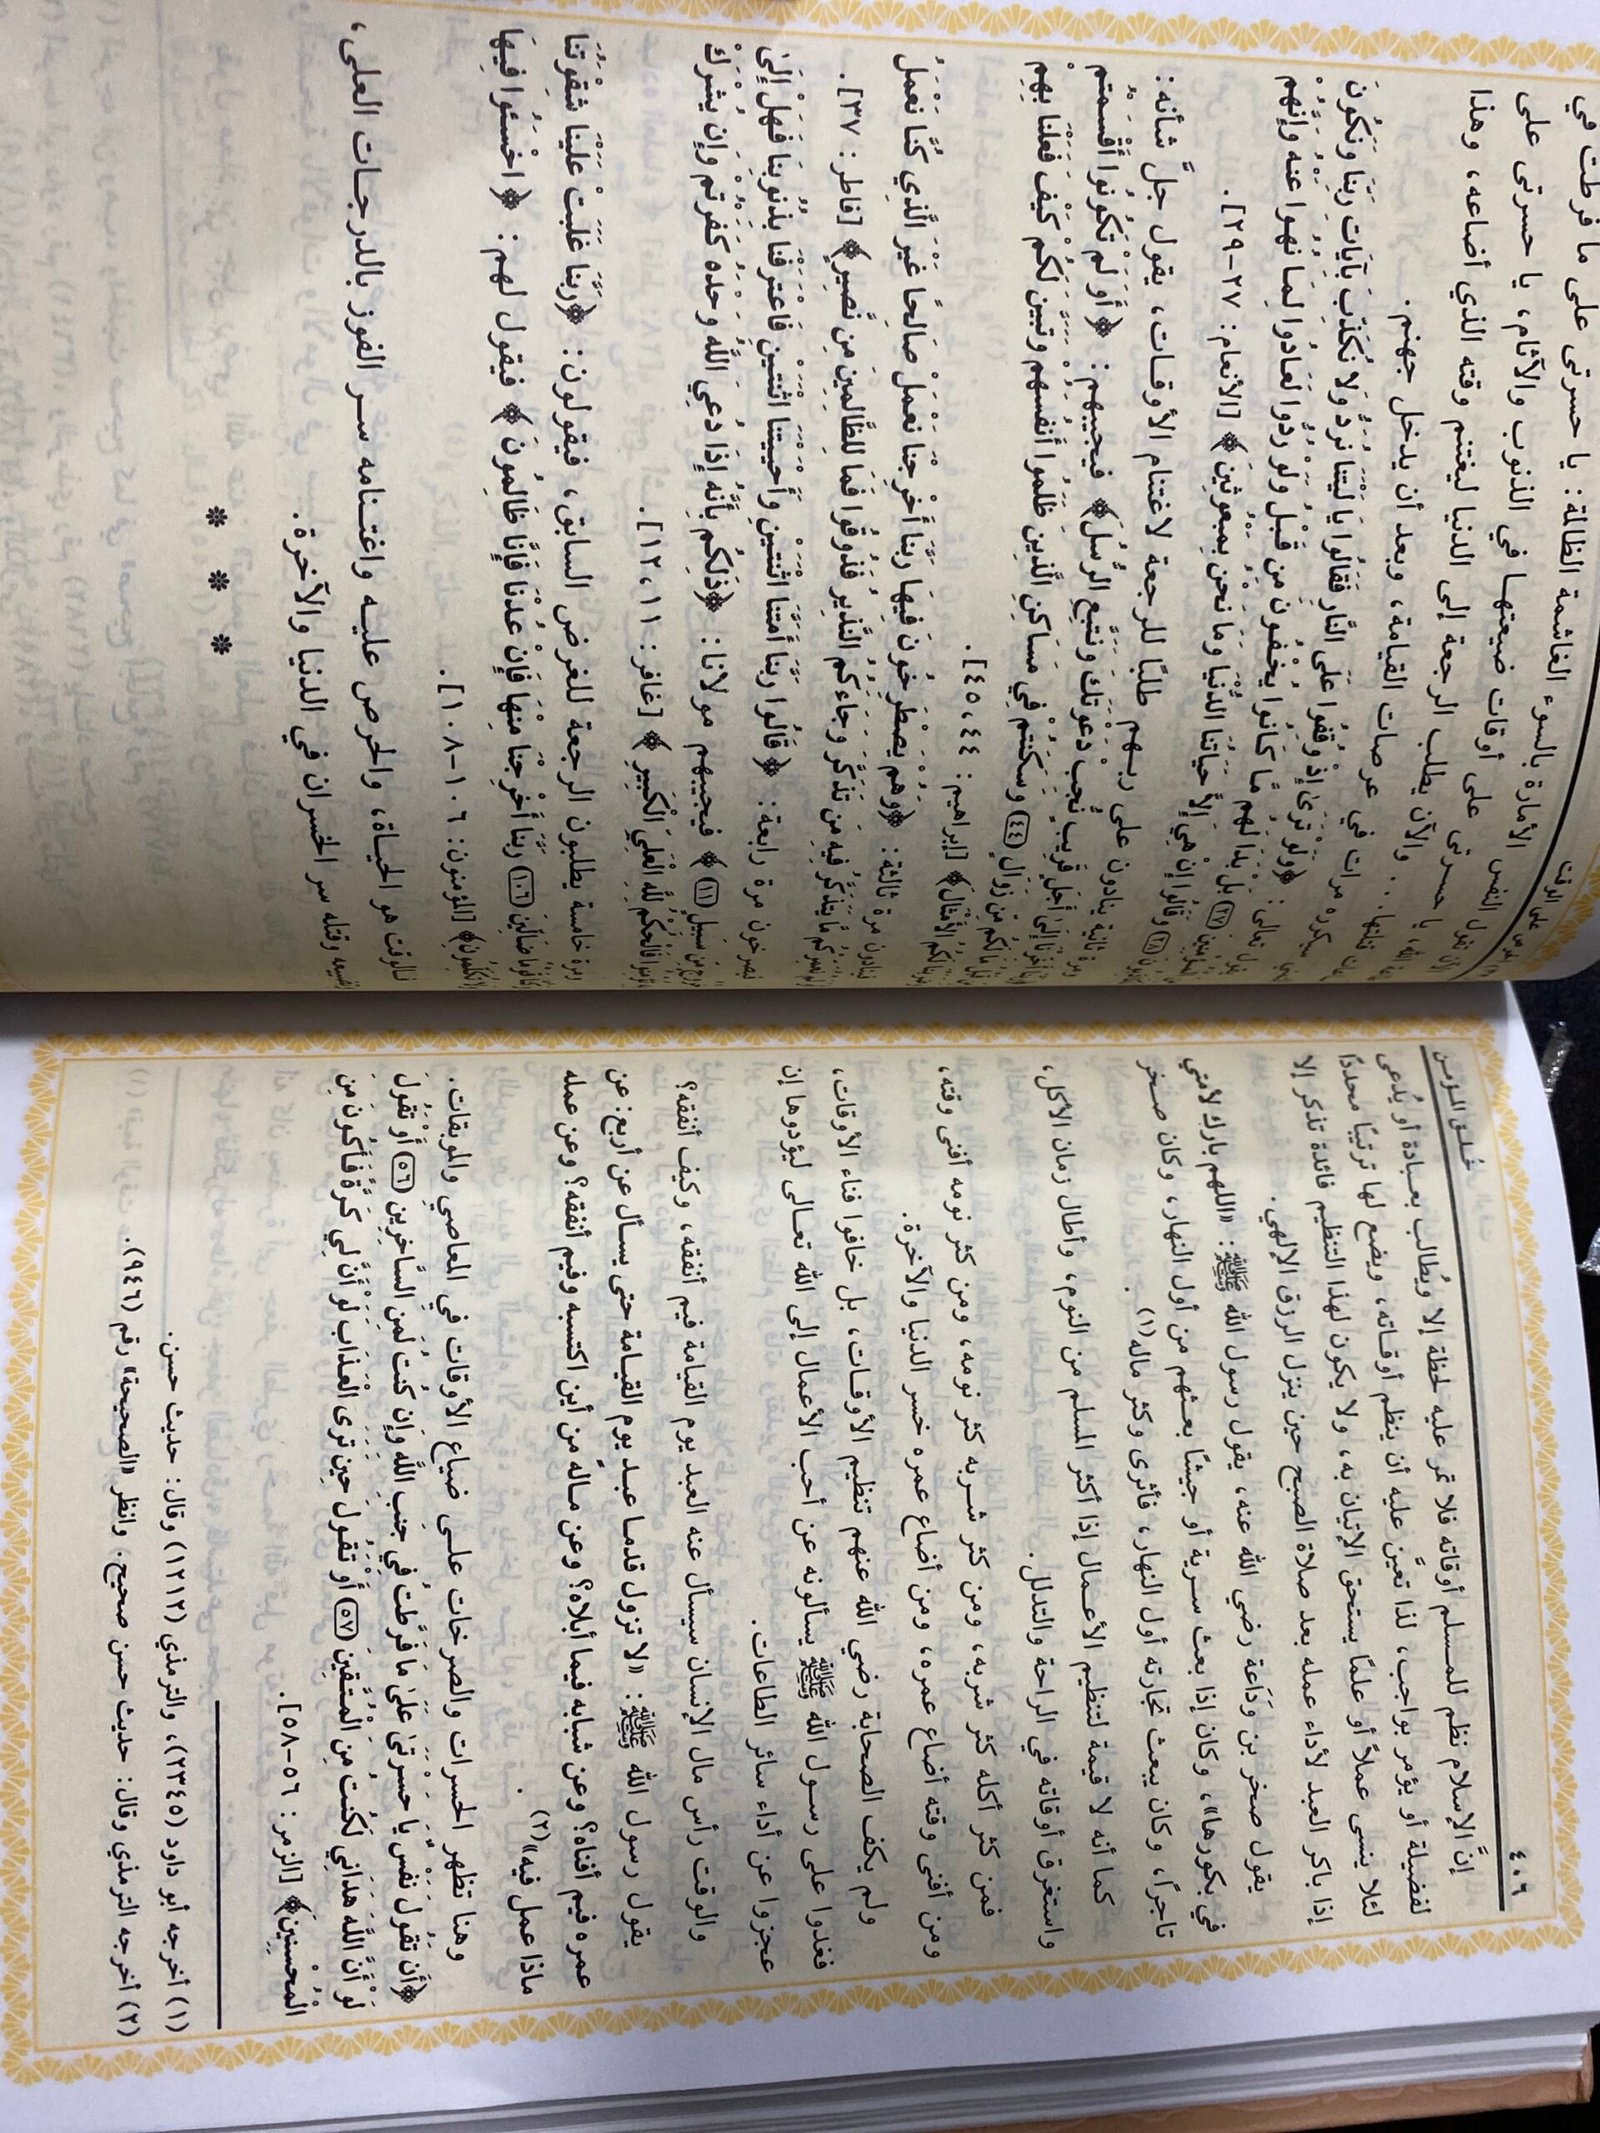 ٤٠٦
خُلُق المؤمن
إنَّ الإسلام نظم للمسلم أوقاته فلا تمر عليه لحظة إلا ويُطالب بعبادة أو يُدعى
لفضيلة أو يؤمر بواجب، لذا تعيَّن عليه أن ينظم أوقاته، ويضع لها ترتيبًا محددًا
لئلا ينسى عملاً أو علمًا يستحق الإتيان به، ولا يكون لهذا التنظيم فائدة تذكر إلا
إذا باكر العبد لأداء عمله بعد صلاة الصبح حين ينزل الرزق الإلهي.
يقول صخر بن وَدَاعة رضي الله عنه، يقول رسول الله ﷺ: «اللهم بارك لأمتي
في بكورها»، وكان إذا بعث سرية أو جيشًا بعثهم من أول النهار، وكان صخر
تاجرًا، وكان يبعث تجارته أول النهار، فأثرى وكثر ماله(١).
كما أنه لا قيمة لتنظيم الأعمال إذا أكثر المسلم من النوم، وأطال زمان الأكل،
واستغرق أوقاته في الراحة والتدلل.
فمن كثر أكله كثر شربه، ومن كثر شربه كثر نومه، ومن كثر نومه أفنى وقته،
ومن أفنى وقته أضاع عمره، ومن أضاع عمره خسر الدنيا والآخرة.
ولم يكف الصحابة رضي الله عنهم تنظيم الأوقات، بل خافوا فناء الأوقات،
فغدوا على رسول الله ﷺ يسألونه عن أحب الأعمال إلى الله تعالى ليؤدوها إن
عجزوا عن أداء سائر الطاعات.
والوقت رأس مال الإنسان سيسأل عنه العبد يوم القيامة فيم أنفقه، وكيف أنفقه؟
يقول رسول الله ﷺ: «لا تزول قدما عبد يوم القيامة حتى يسأل عن أربع: عن
عمره فيم أفناه؟ وعن شبابه فيما أبلاه؟ وعن ماله من أين اكتسبه وفيم أنفقه؟ وعن عمله
ماذا عمل فيه»(٢).
وهنا تظهر الحسرات والصرخات على ضياع الأوقات في المعاصي والموبقات.
﴿أَن تَقُولَ نَفْسٌ يَا حَسْرَتَىٰ عَلَىٰ مَا فَرَّطتُ فِي جَنبِ اللَّهِ وَإِن كُنتُ لَمِنَ السَّاخِرِينَ (٥٦) أَوْ تَقُولَ
لَوْ أَنَّ اللَّهَ هَدَانِي لَكُنتُ مِنَ الْمُتَّقِينَ (٥٧) أَوْ تَقُولَ حِينَ تَرَى الْعَذَابَ لَوْ أَنَّ لِي كَرَّةً فَأَكُونَ مِنَ
الْمُحْسِنِينَ﴾ [الزمر: ٥٦-٥٨].
(١) أخرجه أبو داود (٢٣٤٥)، والترمذي (١٢١٢) وقال: حديث حسن.
(٢) أخرجه الترمذي وقال: حديث حسن صحيح. وانظر «الصحيحة» رقم (٩٤٦).
على الوقت
النفس الأمارة بالسوء الغاشمة الظالمة: يا حسرتى على ما فرطت في
يا حسرتى على أوقات ضيعتها في الذنوب والآثام، يا حسرتى على
والآن يطلب الرجعة إلى الدنيا ليغتنم وقته الذي أضاعه، وهذا
مرات في عرصات القيامة، وبعد أن يدخل جهنم.
﴿وَلَوْ تَرَىٰ إِذْ وُقِفُوا عَلَى النَّارِ فَقَالُوا يَا لَيْتَنَا نُرَدُّ وَلا نُكَذِّبَ بِآيَاتِ رَبِّنَا وَنَكُونَ
(٢٧) بَلْ بَدَا لَهُم مَّا كَانُوا يُخْفُونَ مِن قَبْلُ وَلَوْ رُدُّوا لَعَادُوا لِمَا نُهُوا عَنْهُ وَإِنَّهُمْ
(٢٨) وَقَالُوا إِنْ هِيَ إِلاَّ حَيَاتُنَا الدُّنْيَا وَمَا نَحْنُ بِمَبْعُوثِينَ﴾ [الأنعام: ٢٧-٢٩].
ومرة ثانية ينادون على ربهم طلبًا للرجعة لاغتنام الأوقات، يقول جلَّ شأنه:
أَخِّرْنَا إِلَىٰ أَجَلٍ قَرِيبٍ نُّجِبْ دَعْوَتَكَ وَنَتَّبِعِ الرُّسُلَ﴾ فيجيبهم: ﴿أَوَ لَمْ تَكُونُوا أَقْسَمْتُم
مَا لَكُم مِّن زَوَالٍ (٤٤) وَسَكَنتُمْ فِي مَسَاكِنِ الَّذِينَ ظَلَمُوا أَنفُسَهُمْ وَتَبَيَّنَ لَكُمْ كَيْفَ فَعَلْنَا بِهِمْ
لَكُمُ الأَمْثَالَ﴾ [إبراهيم: ٤٤، ٤٥].
ينادون مرة ثالثة: ﴿وَهُمْ يَصْطَرِخُونَ فِيهَا رَبَّنَا أَخْرِجْنَا نَعْمَلْ صَالِحًا غَيْرَ الَّذِي كُنَّا نَعْمَلُ
نُعَمِّرْكُم مَّا يَتَذَكَّرُ فِيهِ مَن تَذَكَّرَ وَجَاءَكُمُ النَّذِيرُ فَذُوقُوا فَمَا لِلظَّالِمِينَ مِن نَّصِيرٍ﴾ [فاطر: ٣٧].
يصرخون مرة رابعة: ﴿قَالُوا رَبَّنَا أَمَتَّنَا اثْنَتَيْنِ وَأَحْيَيْتَنَا اثْنَتَيْنِ فَاعْتَرَفْنَا بِذُنُوبِنَا فَهَلْ إِلَىٰ
خُرُوجٍ مِّن سَبِيلٍ (١١)﴾ فيجيبهم مولانا: ﴿ذَلِكُم بِأَنَّهُ إِذَا دُعِيَ اللَّهُ وَحْدَهُ كَفَرْتُمْ وَإِن يُشْرَكْ
بِهِ تُؤْمِنُوا فَالْحُكْمُ لِلَّهِ الْعَلِيِّ الْكَبِيرِ﴾ [غافر: ١١، ١٢].
ومرة خامسة يطلبون الرجعة للغرض السابق، فيقولون: ﴿رَبَّنَا غَلَبَتْ عَلَيْنَا شِقْوَتُنَا
وَكُنَّا قَوْمًا ضَالِّينَ (١٠٦) رَبَّنَا أَخْرِجْنَا مِنْهَا فَإِنْ عُدْنَا فَإِنَّا ظَالِمُونَ﴾ فيقول لهم: ﴿اخْسَئُوا فِيهَا
وَلا تُكَلِّمُونِ﴾ [المؤمنون: ١٠٦-١٠٨].
فالوقت هو الحياة، والحرص عليه واغتنامه سر الفوز بالدرجات العلى،
وتضييعه وقتله سر الخسران في الدنيا والآخرة.
* * *